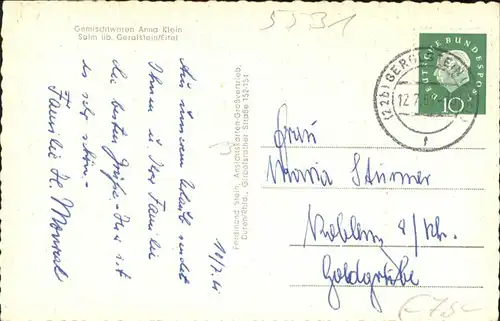 5531
Gemischtwaren Anna Klein
Salm üb. Gerolstein/Eifel
10/7.61
Aus unserem Urlaub sendet
Ihnen u. Ihrer Familie
die besten Grüße. Hier ist
es sehr schön.-
Familie H.
Ferdinand Stein, Ansichtskarten-Großvertrieb,
Düren/Rhld., Girbelsrather Straße 152-154
DEUTSCHE BUNDESPOST
10
(22b) GEROLSTEIN
12.7.61
f
Frau
Maria Sturmer
Koblenz a/Rh.
Goldgrube